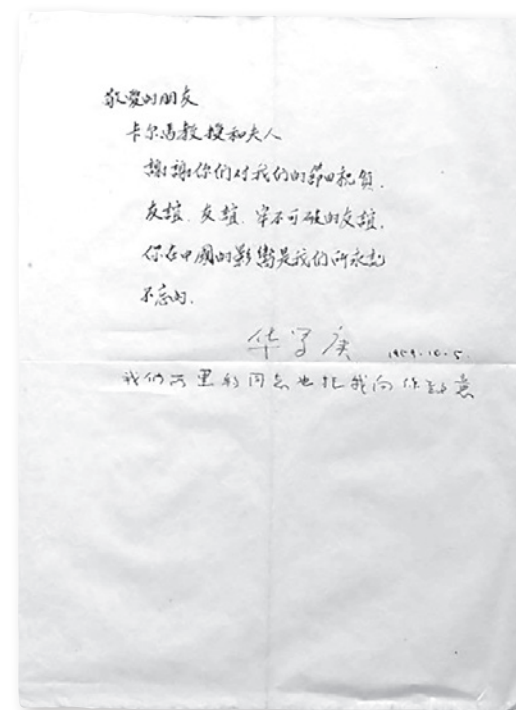 敬爱的朋友
卡尔马教授和夫人
謝謝你们对我们的節日祝賀.
友誼.友誼.牢不可破的友誼.
你在中國的影響是我们所永記
不忘的.
华罗庚 1959.10.5.
我们所里的同志也托我向你致意